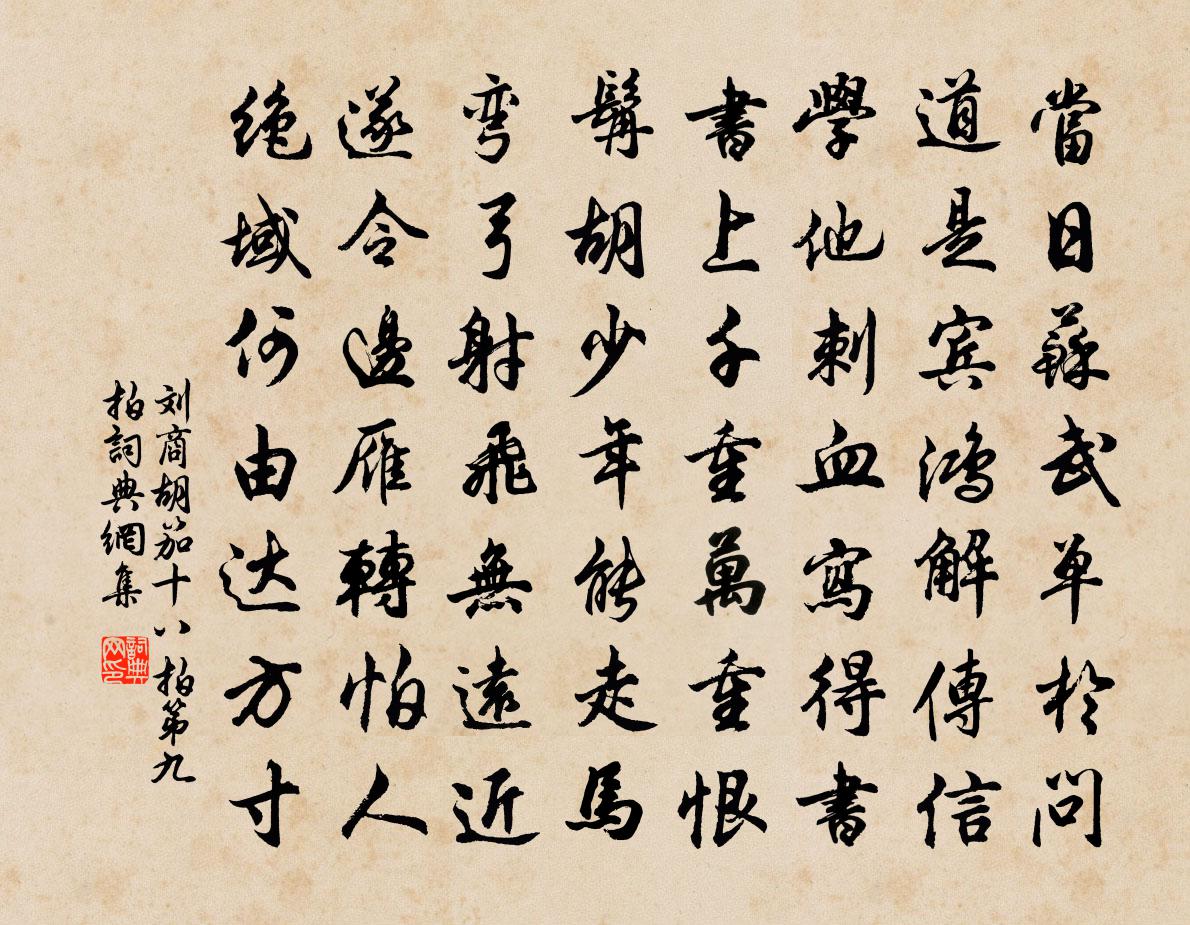 當日蘇武单於問
道是宾鸿解傳信
學他刺血寫得書
書上千重萬重恨
髯胡少年能走馬
弯弓射飛無遠近
遂令邊雁轉怕人
绝域何由达方寸
刘商胡笳十八拍第九
拍詞典網集
詞典网印